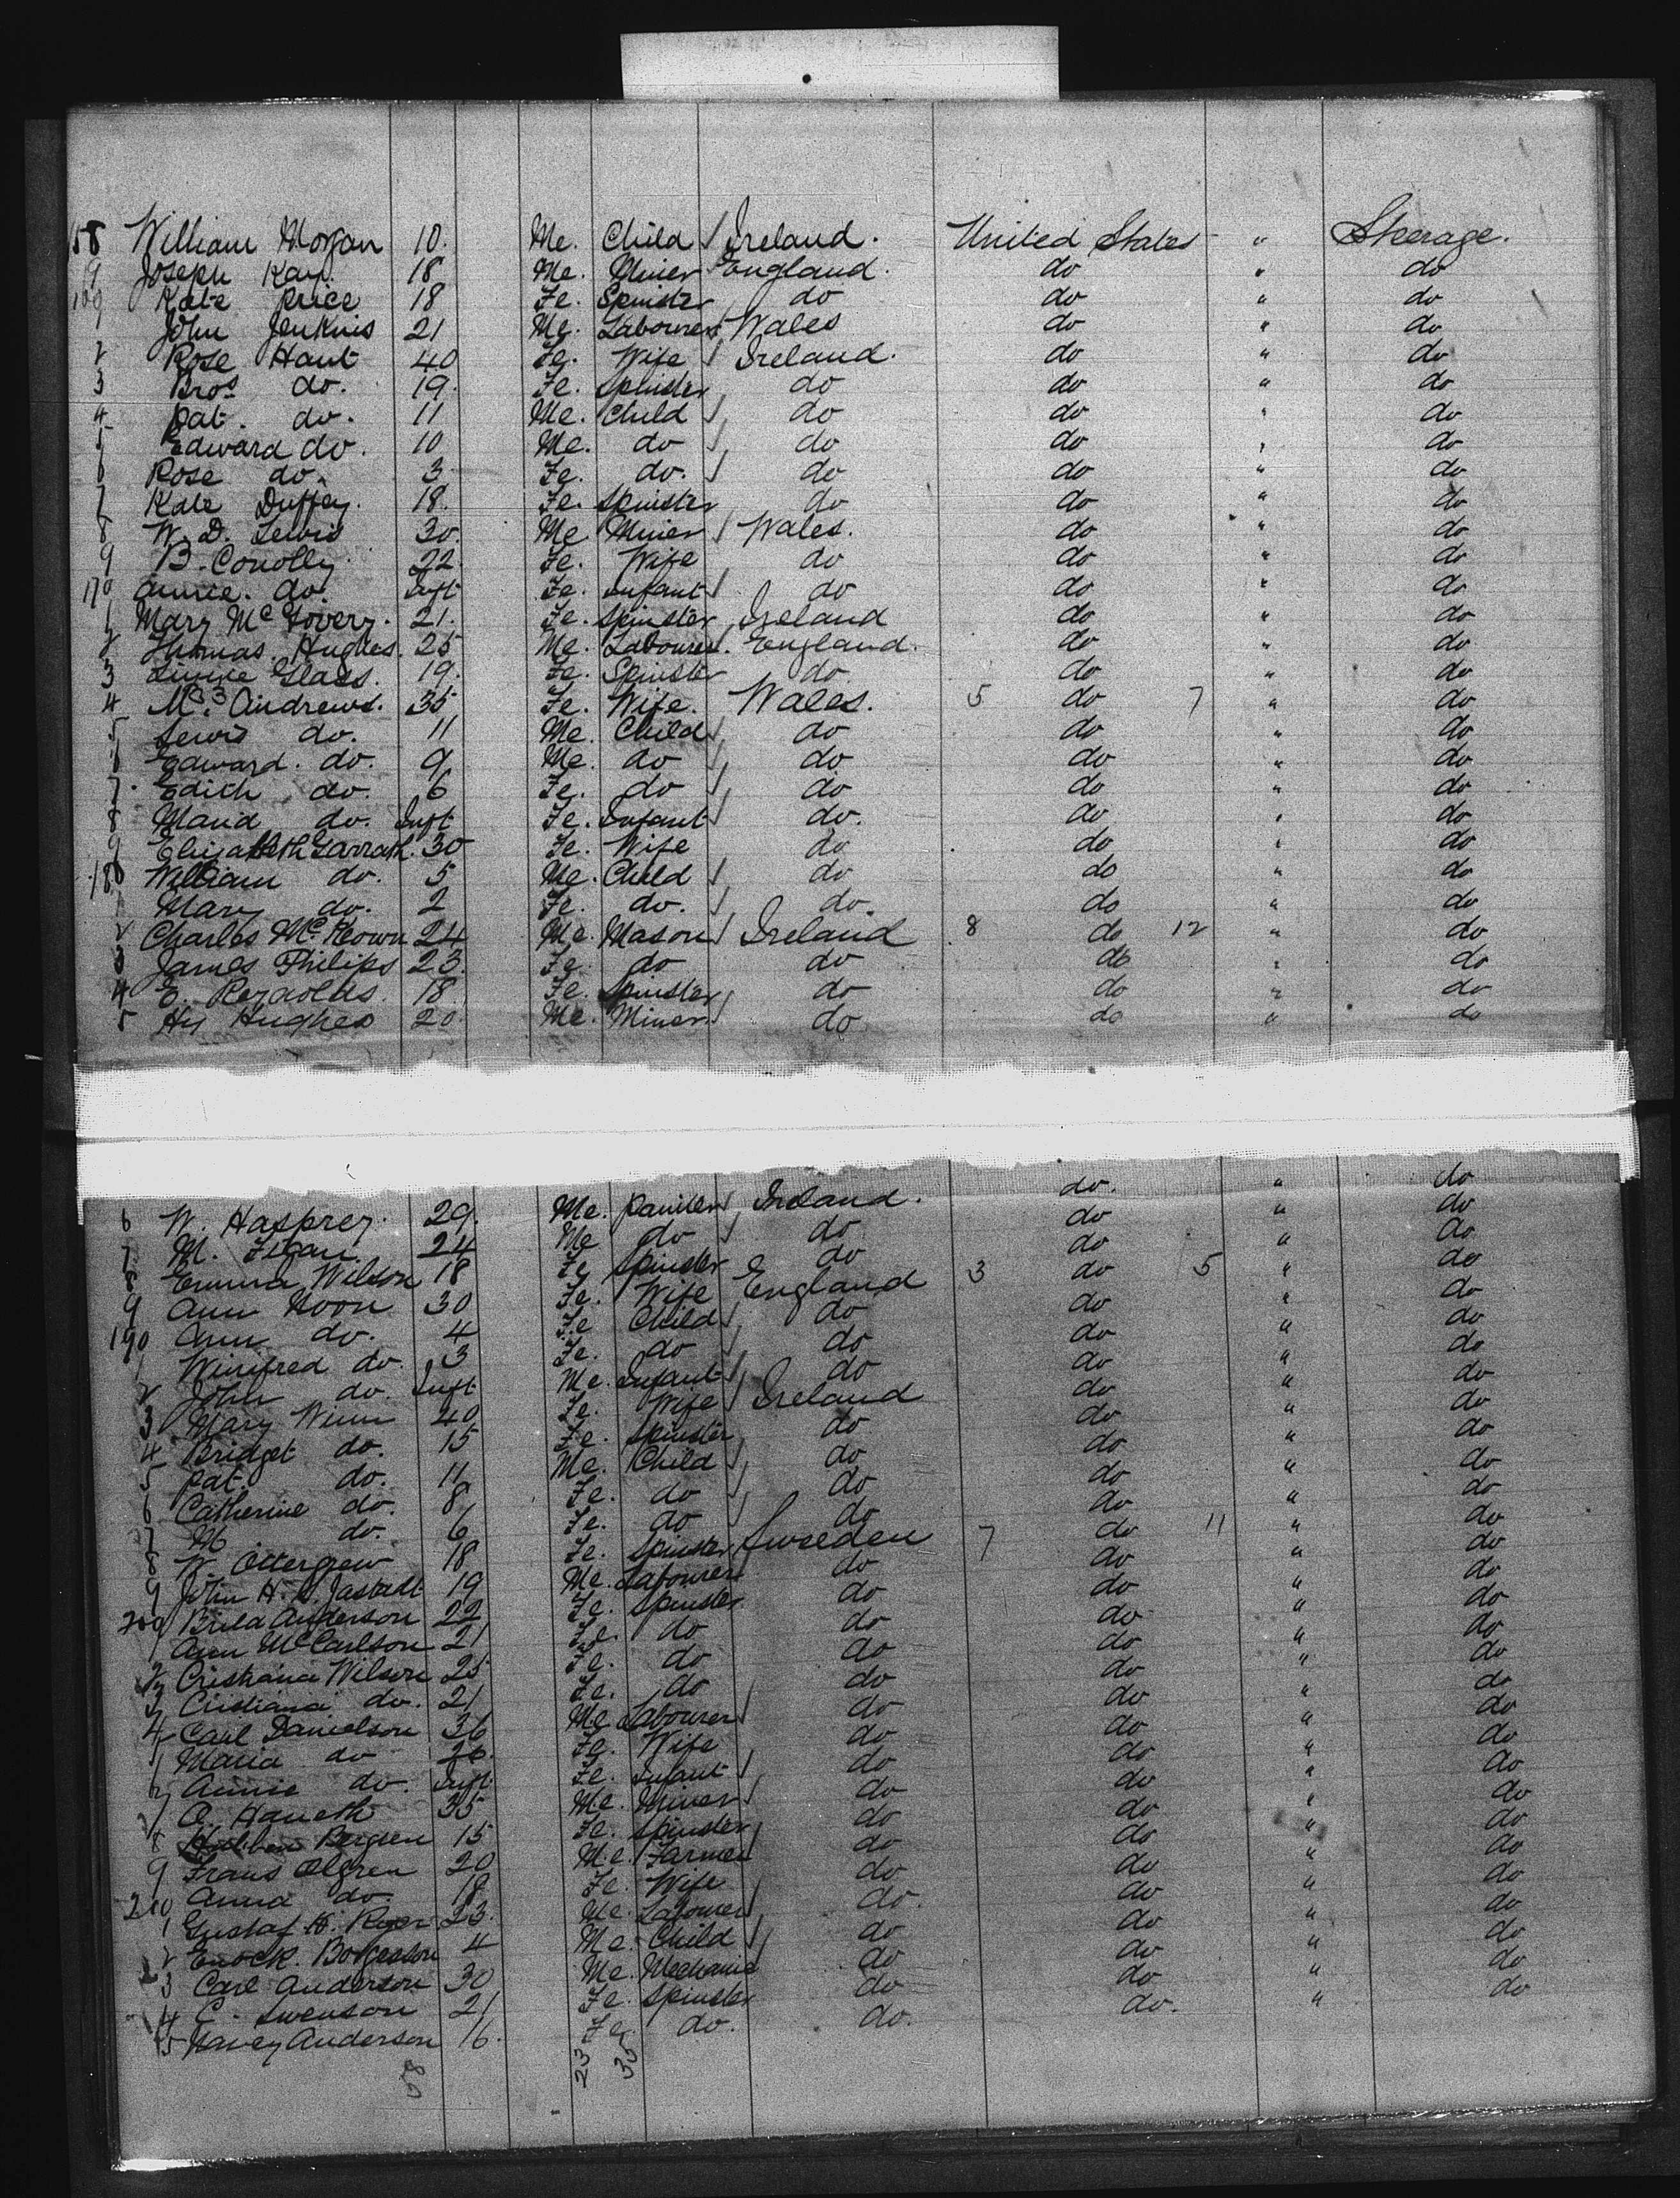 158 William Morgan 10. Me. Child Ireland. United States " Steerage.
9 Joseph Kay. 18 Me. Miner England. do " do
160 Kate Price 18 Fe. Spinster do do " do
1 John Jenkins 21 Me. Labourer Wales do " do
2 Rose Hant 40 Fe. Wife Ireland. do " do
3 Bros do. 19. Fe. Spinster do do " do
4 Pat. do. 11 Me. Child do do " do
5 Edward do. 10 Me. do do do " do
6 Rose do. 3 Fe. do. do do " do
7 Kate Duffey. 18. Fe. Spinster do do " do
8 W. D. Lewis 30. Me Miner Wales. do " do
9 B. Conolly. 22. Fe. Wife do do " do
170 Annie. do. Inft Fe. Infant do do " do
1 Mary McGovery. 21. Fe. Spinster Ireland do " do
2 Thomas Hughes. 25 Me. Labourer. England. do " do
3 Linnie Glass. 19. Fe. Spinster do do " do
4 Mrs. Andrews. 35 Fe. Wife. Wales. 5 do 7 " do
5 Lewis do. 11 Me. Child do do " do
6 Edward. do. 9 Me. do do do " do
7. Edith do. 6 Fe. do do do " do
8 Maud do. Inft Fe. Infant do. do " do
9 Elizabeth Garrath. 30 Fe. Wife do do " do
180 William do. 5 Me. Child do do " do
1 Mary do. 2 Fe. do. do. do " do
2 Charles McKeown 24 Me. Mason Ireland 8 do 12 " do
3 James Philips 23. Fe. do do do " do
4 E. Reynolds. 18. Fe. Spinster do do " do
5 Hy Hughes 20 Me. Miner do do " do
6 W. 29. Me. Painter Ireland. do. " do
7 M. 24 Me do do do " do
8 Emma Wilson 18 Fe Spinster do do " do
9 Ann Hoon 30 Fe. Wife England 3 do 5 " do
190 Ann do. 4 Fe Child do do " do
1 Winifred do. 3 Fe. do do do " do
2 John do. Inft Me. Infant do do " do
3 Mary Winn 40 Fe. Wife Ireland do " do
4 Bridget do. 15 Fe. Spinster do do " do
5 Pat. do. 11 Me. Child do do " do
6 Catherine do. 8 Fe. do do do " do
7 M do. 6 Fe. do do do " do
8 W. 18 Fe. Spinster Sweeden 7 do 11 " do
9 John H. 19 Me. Labourer do do " do
200 Brita Anderson 22 Fe. Spinster do do " do
1 Ann McCarlson 21 Fe. do do do " do
2 Cristiana Wilson 25 Fe. do do do " do
3 Cristiana do. 21 Fe. do do do " do
4 Carl Danielson 36 Me Labourer do do " do
Maria do 26. Fe. Wife do do " do
Annie do. Inft. Fe. Infant do do " do
O. Haneth 35 Me. Miner do do " do
8 Bergren 15 Fe. Spinster do do " do
9 Frans Olgren 20 Me. Farmer do do " do
210 Anna do. 18 Fe. Wife do do " do
1 Gustaf H. 23. Me. Labourer do. do " do
2 Enock. Borgesson 4 Me. Child do do " do
3 Carl Anderson 30 Me. Mechanic do do " do
4 C. Swenson 21 Fe. Spinster do do " do
5 Anderson 16. Fe. do. do. do. " do
58 23 35